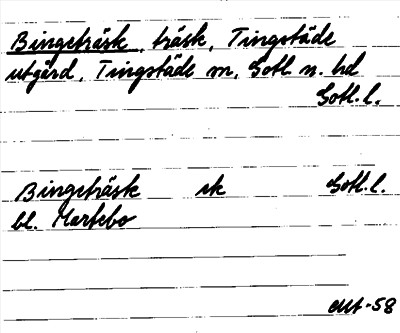 Bingeträsk, träsk, Tingstäde
utgård, Tingstäde sn, Gotl. n. hd
Gotl. l.
Bingeträsk ek Gotl. l.
bl. Martebo